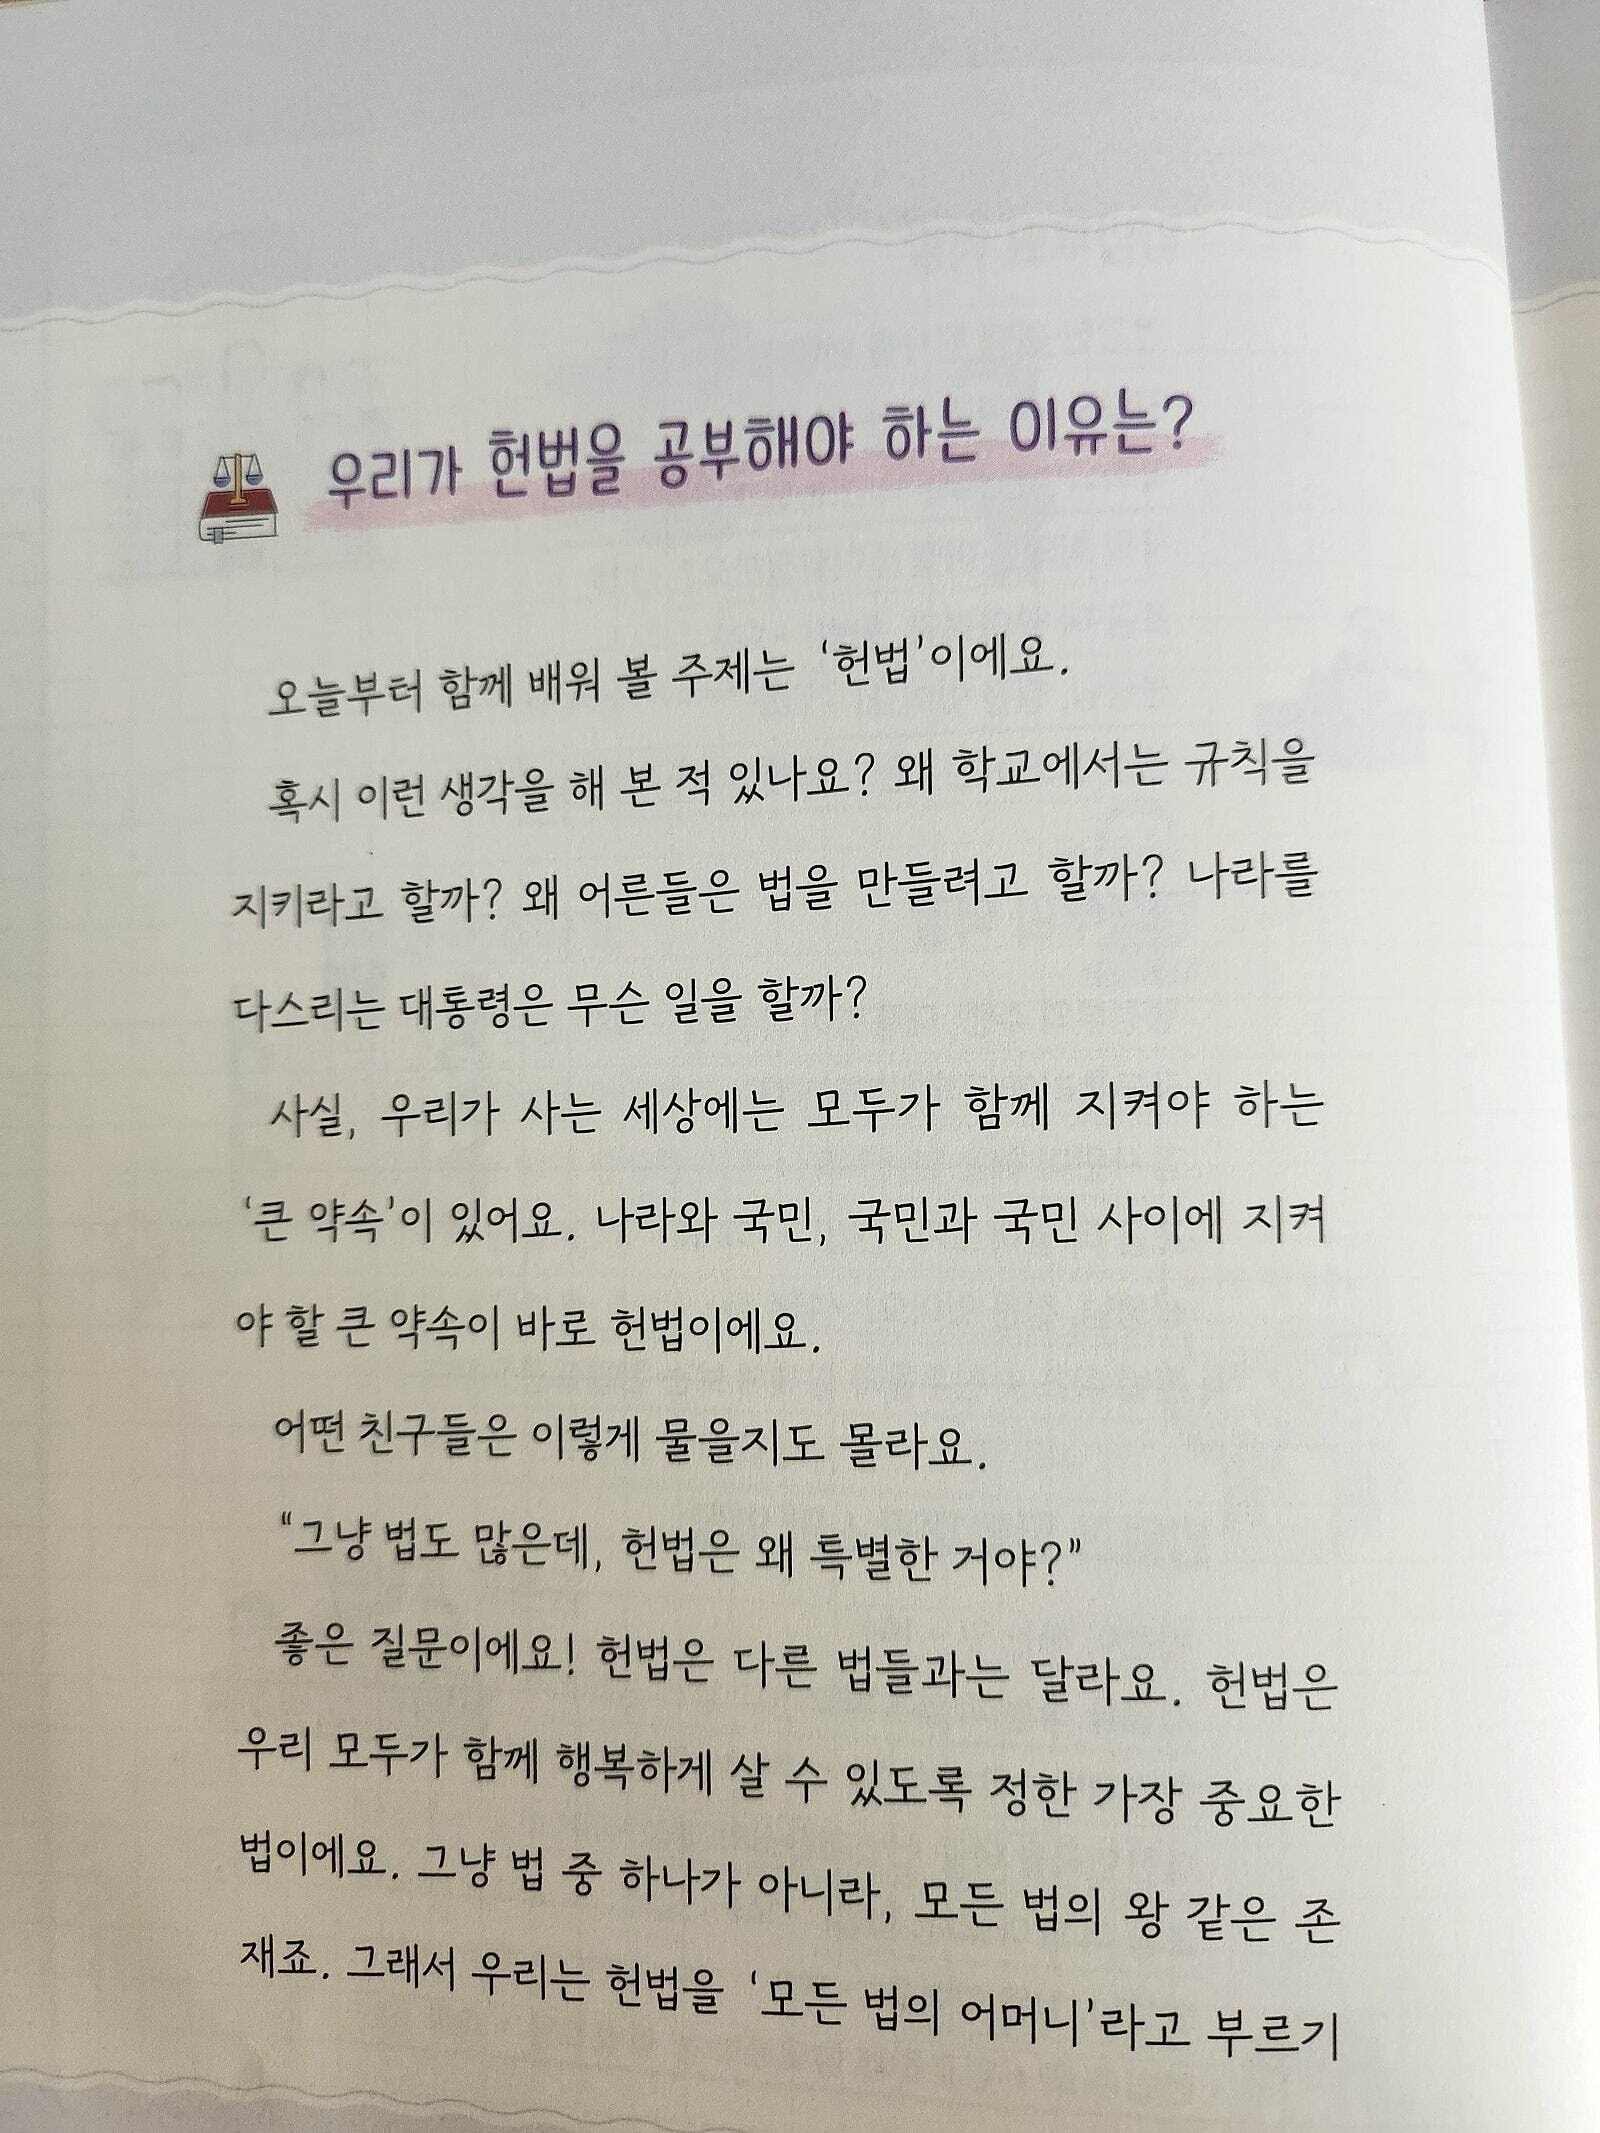 우리가 헌법을 공부해야 하는 이유는?
오늘부터 함께 배워 볼 주제는 ‘헌법’이에요.
혹시 이런 생각을 해 본 적 있나요? 왜 학교에서는 규칙을
지키라고 할까? 왜 어른들은 법을 만들려고 할까? 나라를
다스리는 대통령은 무슨 일을 할까?
사실, 우리가 사는 세상에는 모두가 함께 지켜야 하는
‘큰 약속’이 있어요. 나라와 국민, 국민과 국민 사이에 지켜
야 할 큰 약속이 바로 헌법이에요.
어떤 친구들은 이렇게 물을지도 몰라요.
“그냥 법도 많은데, 헌법은 왜 특별한 거야?”
좋은 질문이에요! 헌법은 다른 법들과는 달라요. 헌법은
우리 모두가 함께 행복하게 살 수 있도록 정한 가장 중요한
법이에요. 그냥 법 중 하나가 아니라, 모든 법의 왕 같은 존
재죠. 그래서 우리는 헌법을 ‘모든 법의 어머니’라고 부르기